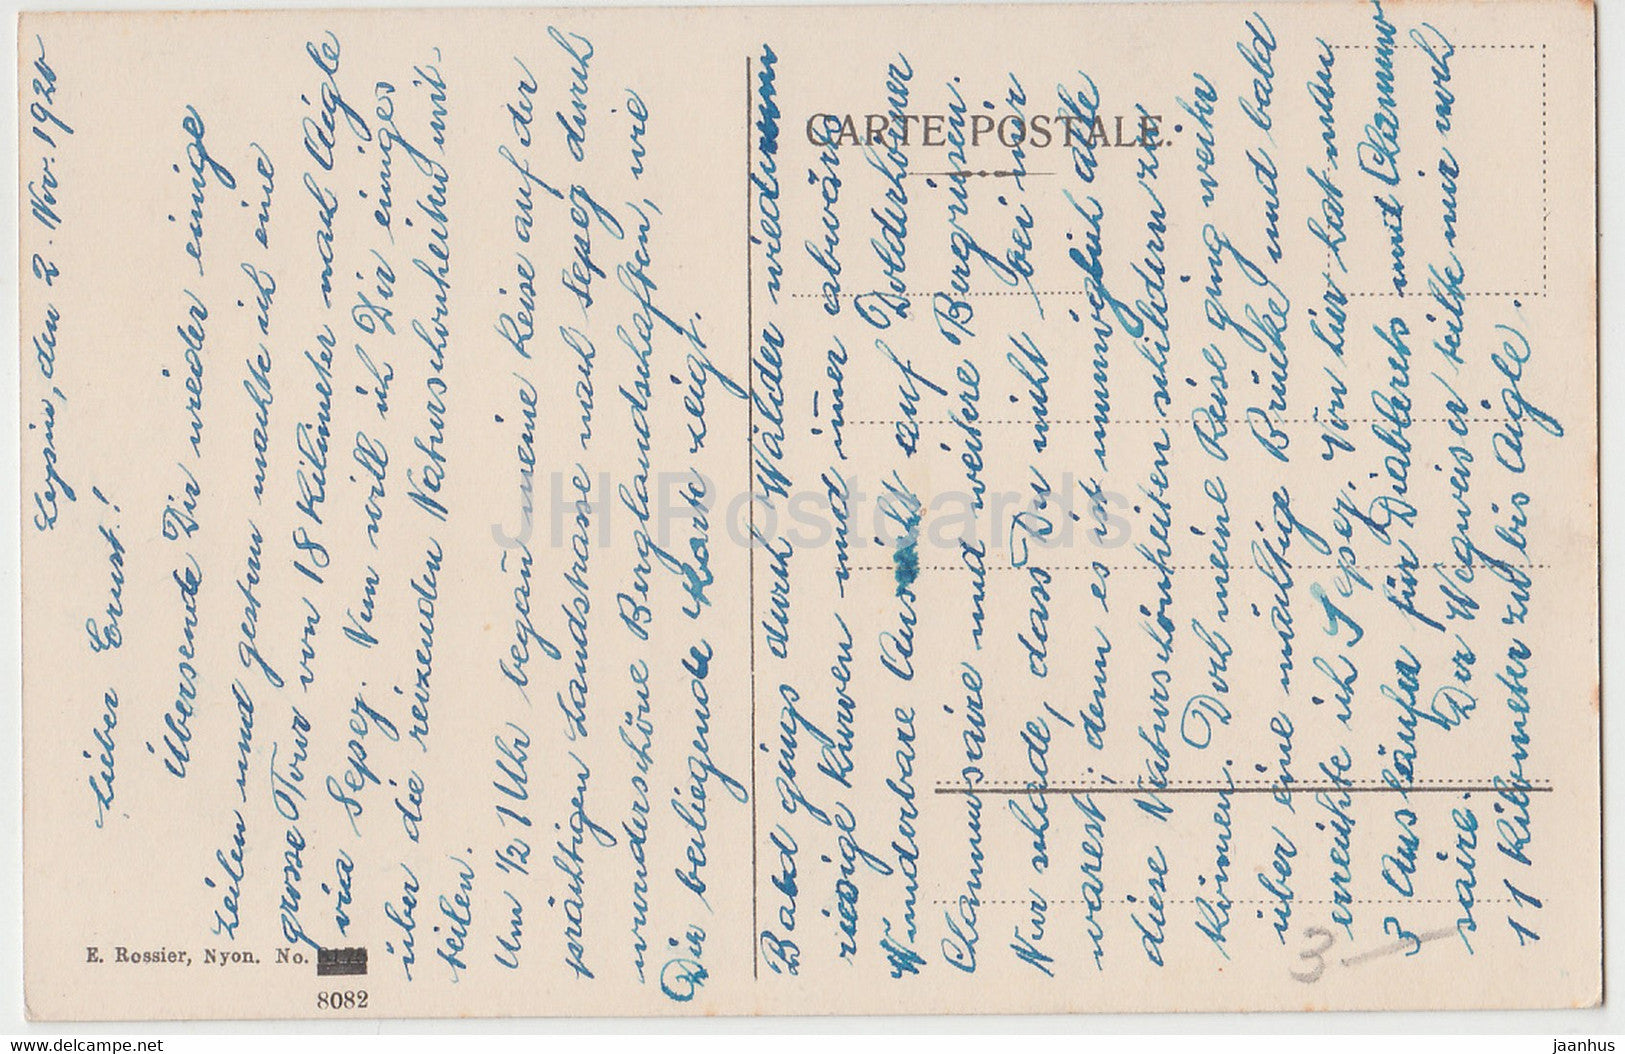 Leysin, den 2. Nov. 1920
Lieber Ernst!
Übersende Dir wieder einige
Zeilen und gestern machte ich eine
grosse Tour von 18 Kilometer nach Aigle
via Sepey. Nun will ich Dir einiges
über die reizenden Naturschönheiten mit-
teilen.
Um 1/2 1 Uhr begañ meine Reise auf der
prächtigen Landstrasse nach Sepey durch
wunderschöne Berglandschaften, wie
Dir beiliegende Karte zeigt.
E. Rossier, Nyon. No.
8082
CARTE POSTALE.
Bald gings durch Wälder wiederum
riesige Kurven und im̄er abwärts
Wunderbare Aussicht auf
Chamusaire und weitere Bergriesen.
Nur schade, dass Du nicht bei mir
warest, denn es ist unmöglich alle
diese Naturschönheiten schildern zu
kön̄en. Doch meine Reise ging weiter
über eine mächtige Brücke und bald
erreichte ich Sepey. Von hier hat man
3 Ausläufer für Diablerets und Chamu-
saire. Der Wegweiser teilte mir noch
11 Kilometer zu bis Aigle.
3 —
JH Postcards
www.delcampe.net
jaanhus